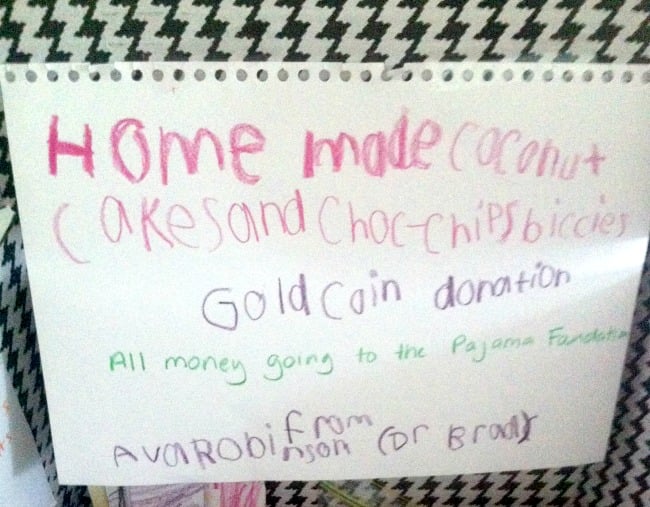 Home made coconut
Cakes and choc-chips biccies
Gold Coin donation
All money going to the Pajama Fandation
From
Ava Robinson (or Brady